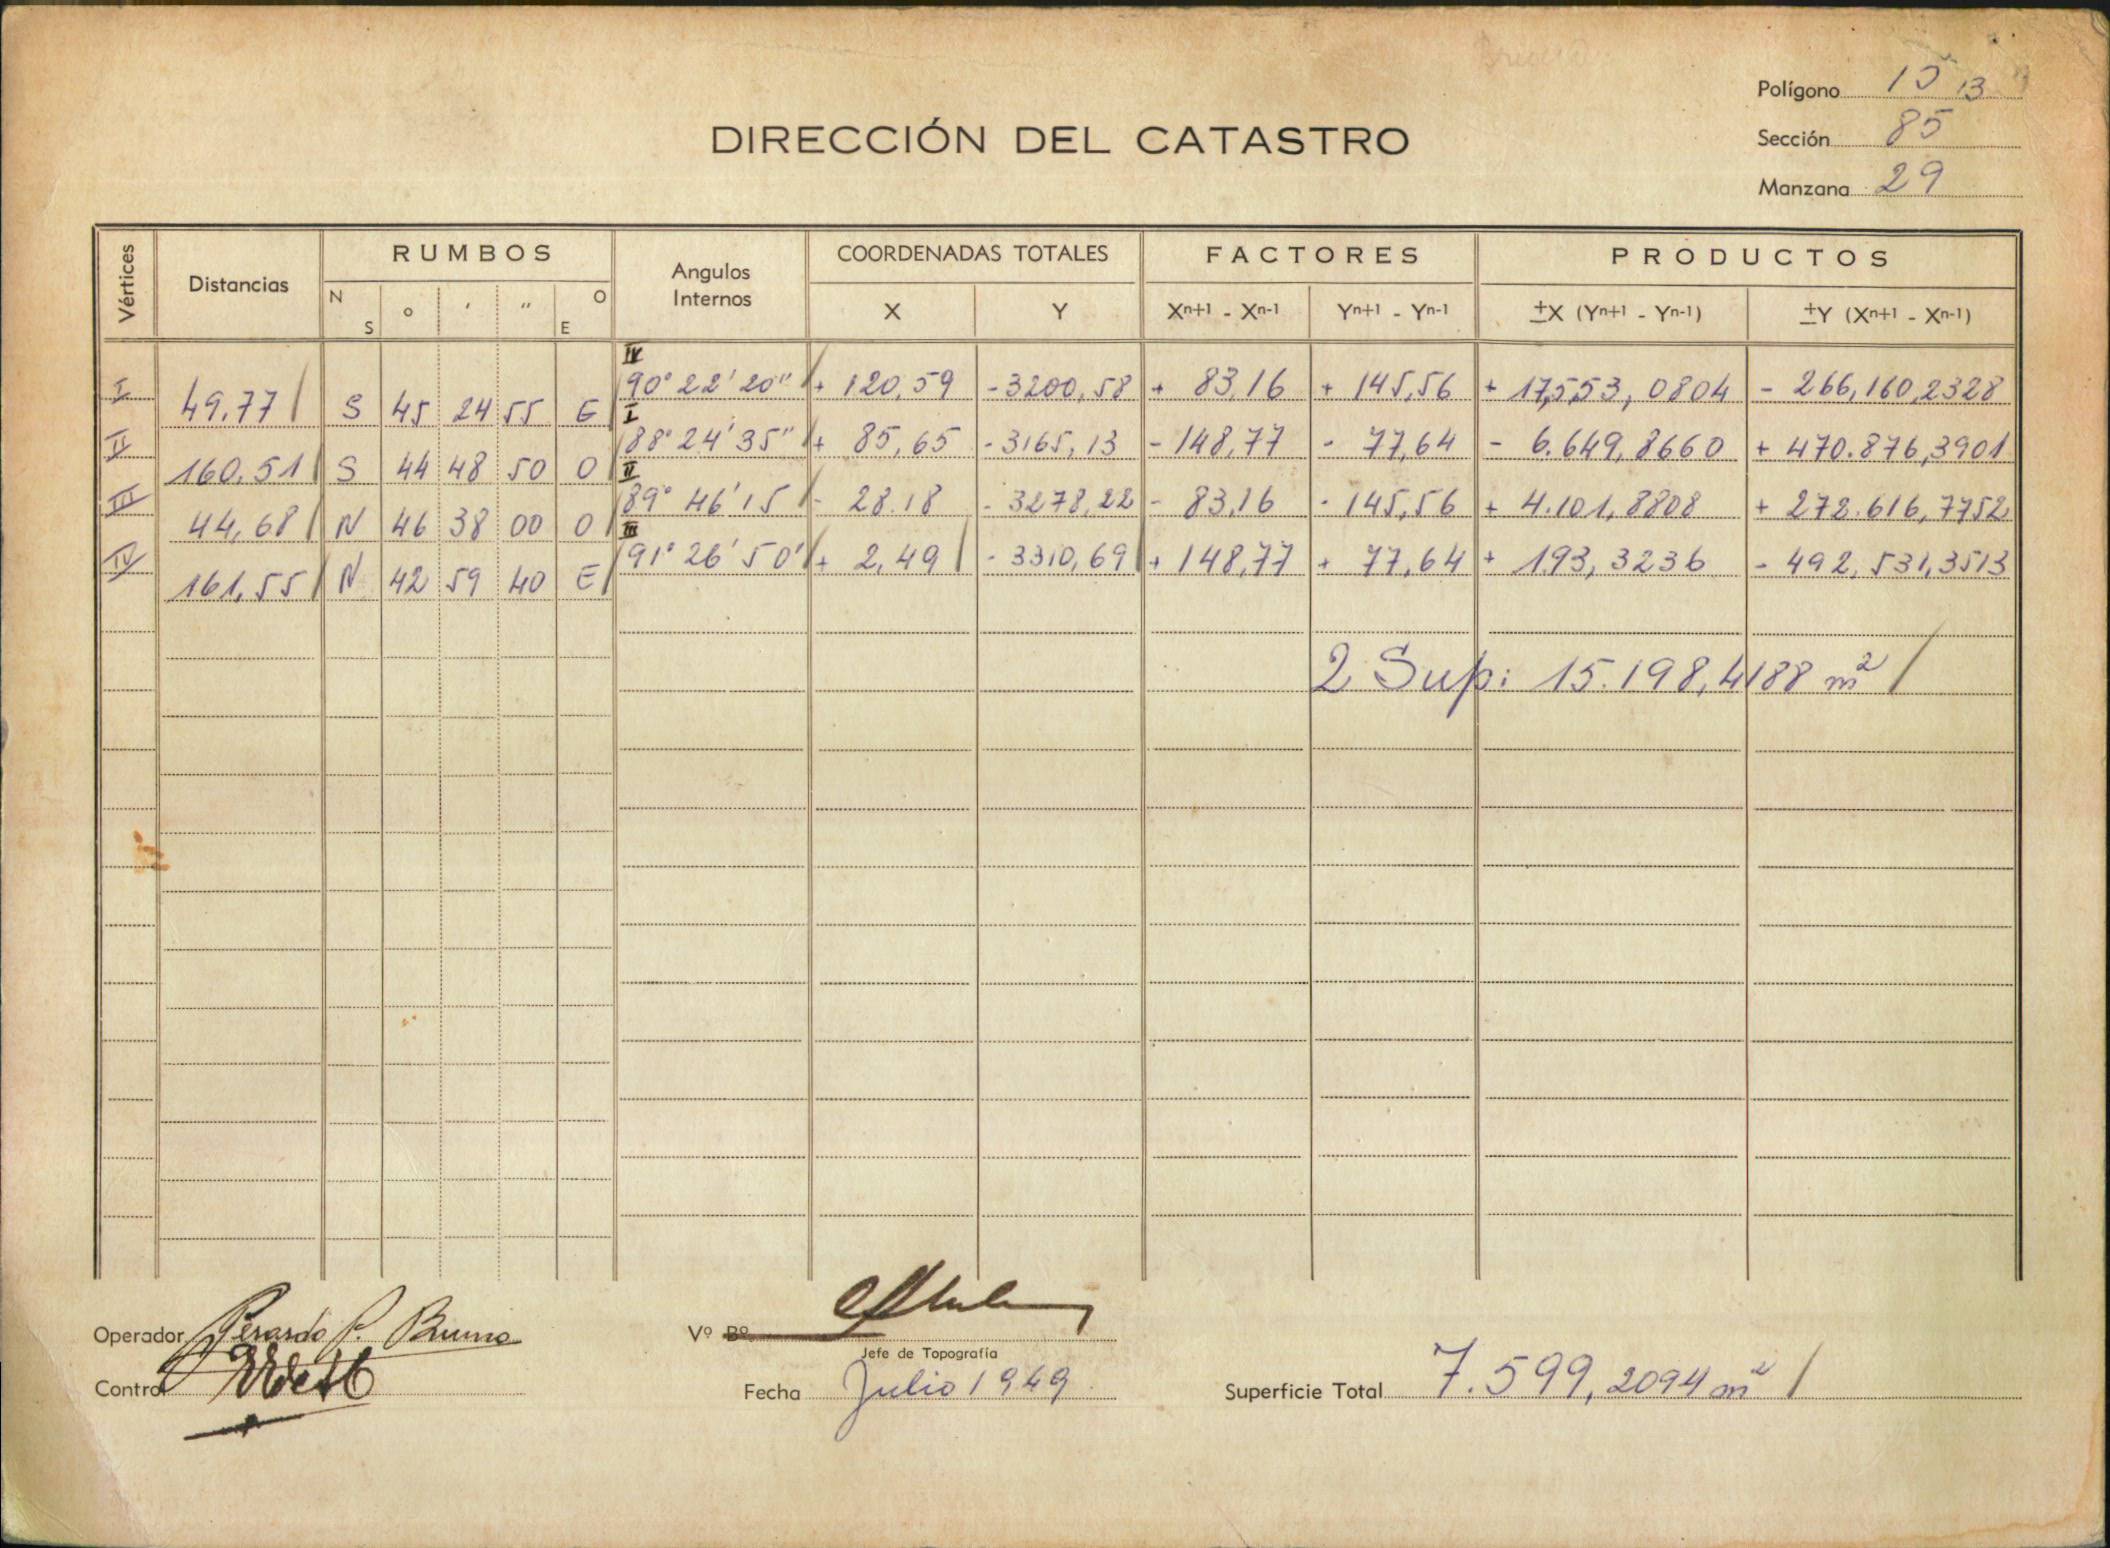 Polígono 15 13
DIRECCIÓN DEL CATASTRO
Sección 85
Manzana 29
Vértices Distancias RUMBOS Angulos Internos COORDENADAS TOTALES FACTORES PRODUCTOS
N S ° ' " O E X Y Xn+1 - Xn-1 Yn+1 - Yn-1 ±X (Yn+1 - Yn-1) ±Y (Xn+1 - Xn-1)
IV
I 90° 22' 20" + 120,59 - 3200,58 + 83,16 + 145,56 + 17,553,0804 - 266,160,2328
49.77 S 45 24 55 E I
II 88° 24' 35" + 85,65 - 3165,13 - 148,77 - 77,64 - 6.649,8660 + 470.876,3901
160.51 S 44 48 50 O II
III 89° 46' 15 - 28.18 - 3278,22 - 83,16 - 145,56 + 4.101,8808 + 272.616,7752
44,68 N 46 38 00 O III
IV 91° 26' 50' + 2,49 - 3310,69 + 148,77 + 77,64 + 193,3236 - 492,531,3513
161,55 N 42 59 40 E
2 Sup: 15.198,4188 m²
Operador Gerardo P. Bruno Vº Bº
Jefe de Topografía
Control Fecha Julio 1949 Superficie Total 7.599,2094 m²